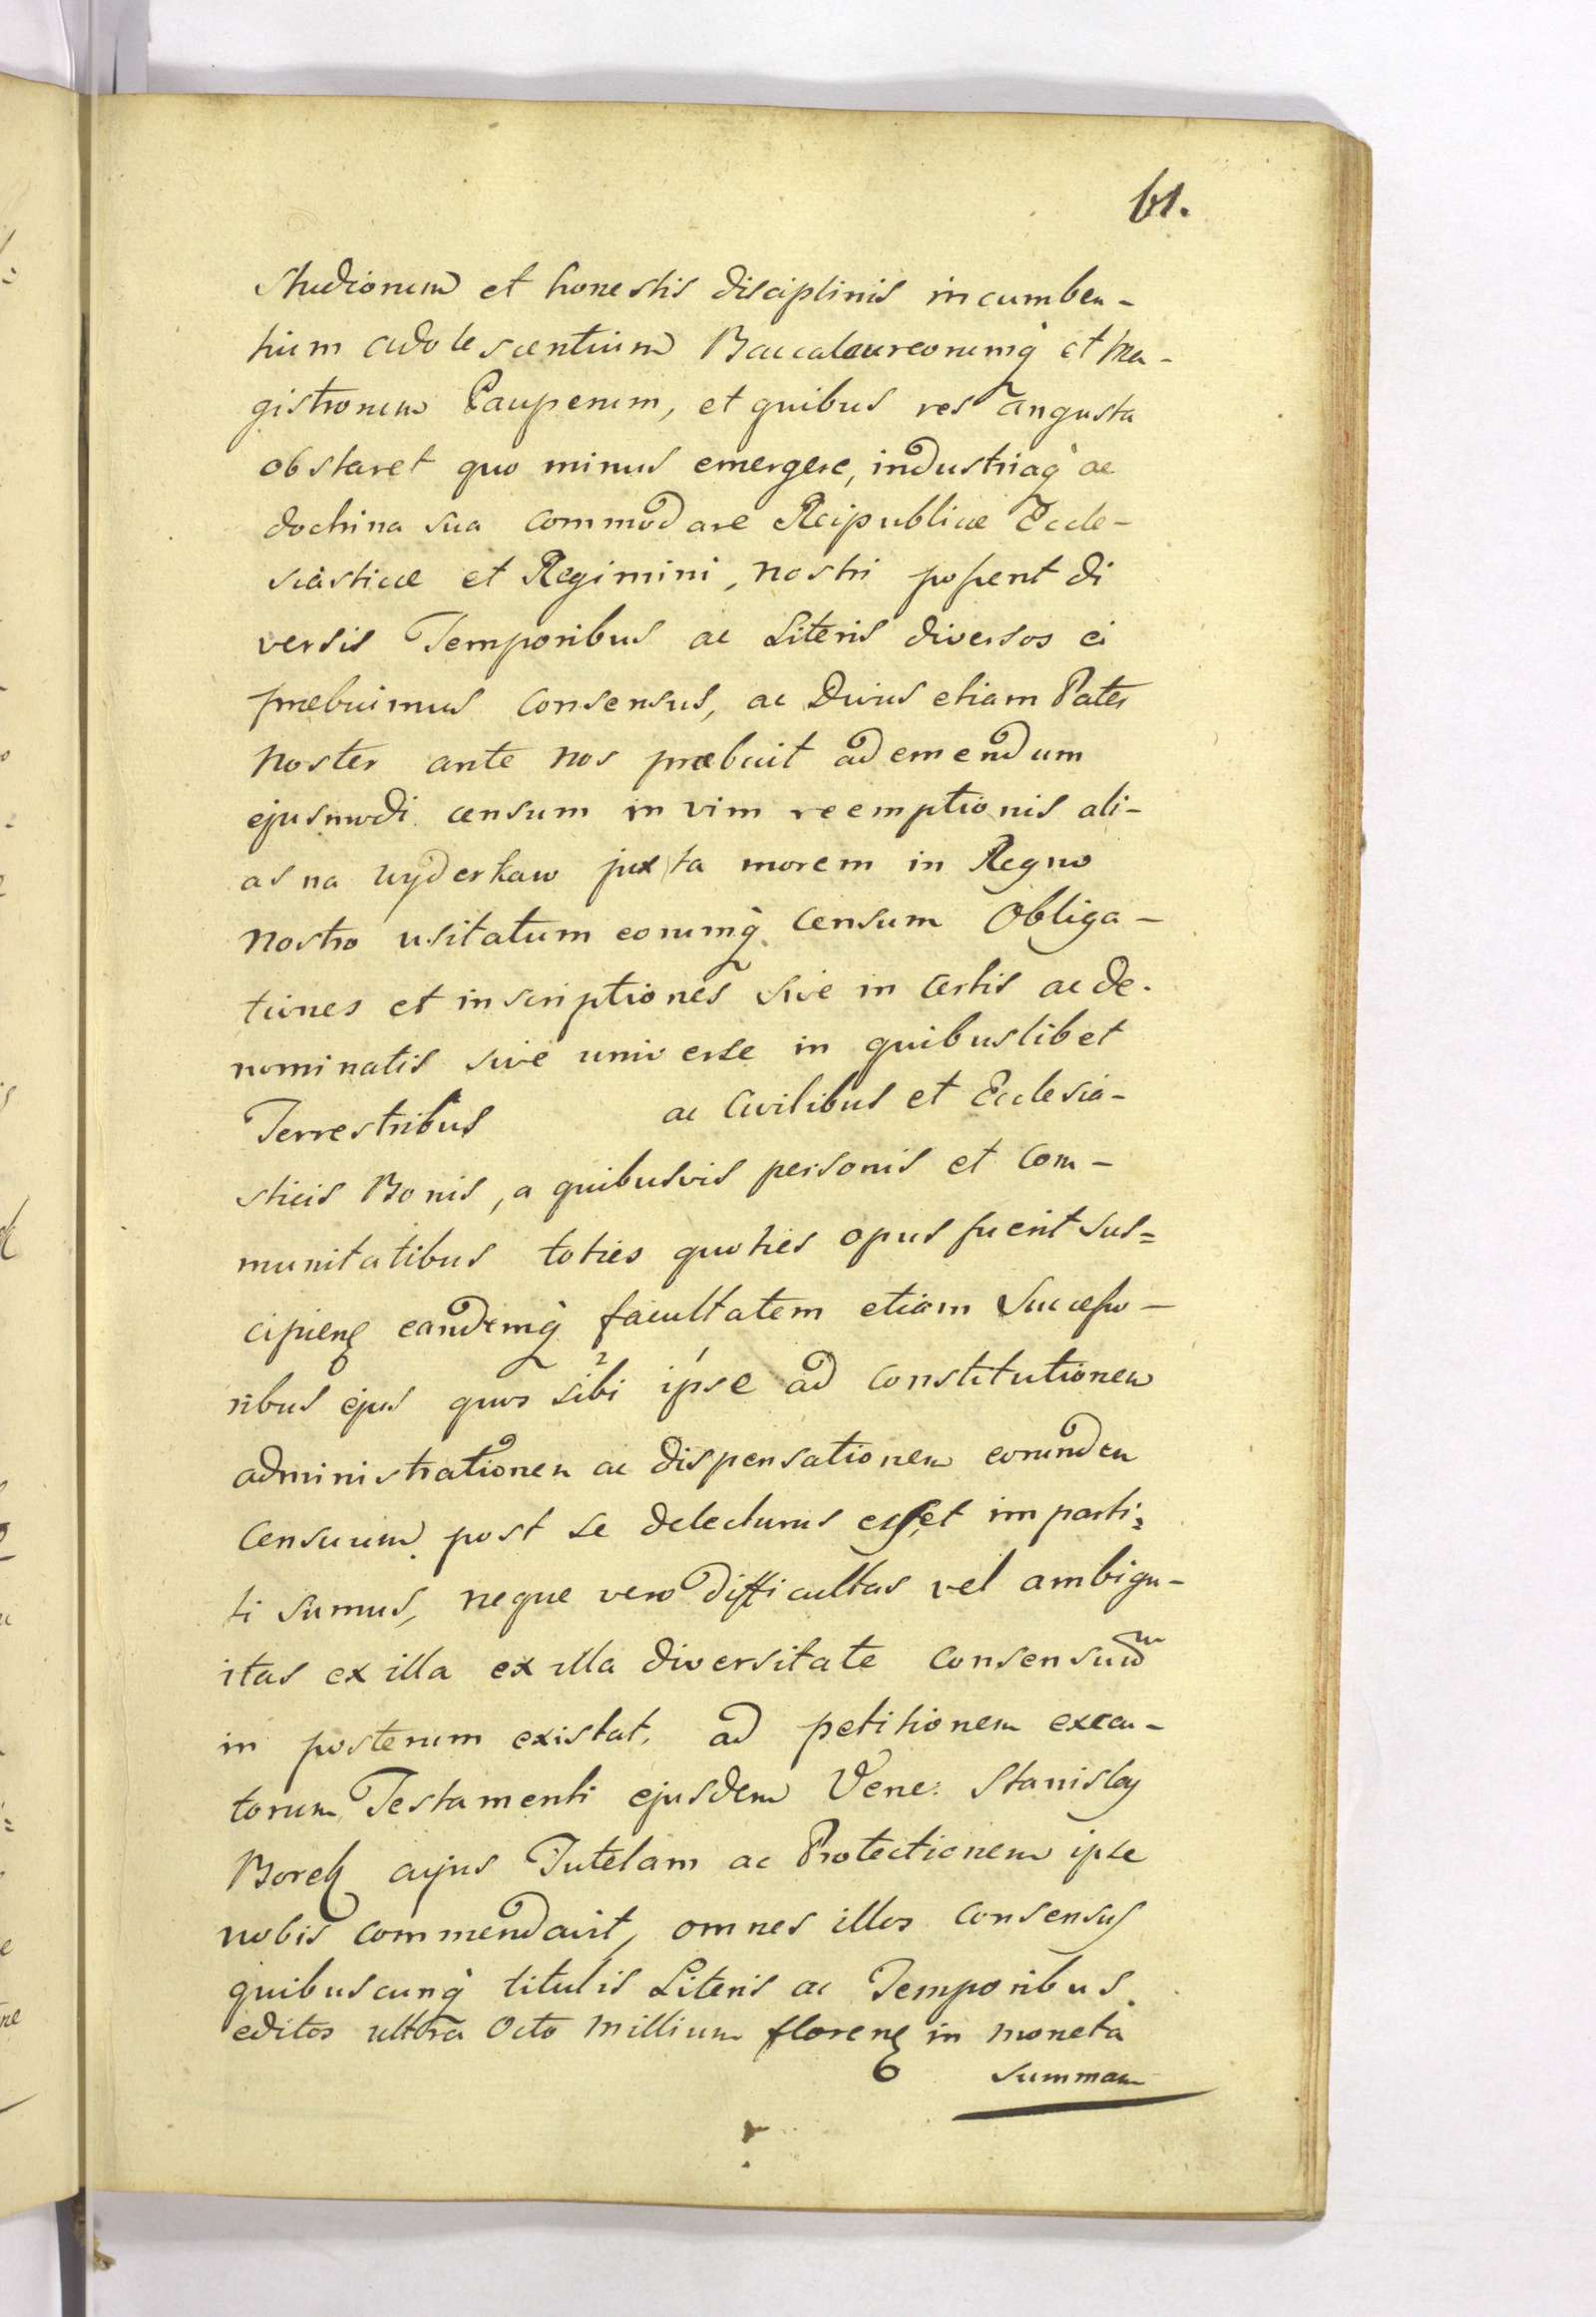 61.
studiorum et honestis disciplinis incumben-
tium adolescentium Baccalaureorumq̀ et Ma-
gistrorum Pauperum, et quibus res angusta
obstaret quo minus emergere, industriaq̀ ac
doctrina sua commodare Reipublicæ Eccle-
siasticæ et Regimini, nostri possent di
versis Temporibus ac Literis diversos ei
præbuimus consensus, ac Divus etiam Pater
Noster ante nos præbuit ad emendum
ejusmodi censum in vim reemptionis ali-
as na wyderkaw juxta morem in Regno
Nostro usitatum eorumq̀ censum Obliga-
tiones et inscriptiones sive in certis ac de-
nominatis sive universe in quibuslibet
Terrestribus ac Civilibus et Ecclesia-
sticis Bonis, a quibusvis personis et com-
munitatibus toties quoties opus fuerit sus=
cipienꝭ eandemq̀ facultatem etiam Successo-
ribus ejus quos 2 sibi 1 ipse ad constitutionem
administrationem ac dispensationem eorumdem
Censuum post se delecturus esset imparti=
ti sumus, neque vero difficultas vel ambigu-
itas ex illa ex illa diversitate consensuum
in posterum existat, ad petitionem execu-
torum Testamenti ejusdem Vene: Stanislaj
Borek cujus Tutelam ac Protectionem ipse
nobis commendavit, omnes illos consensus
quibuscunq̀ titulis Literis ac Temporibus
editos ultra Octo Millium florenꝭ in moneta
summam